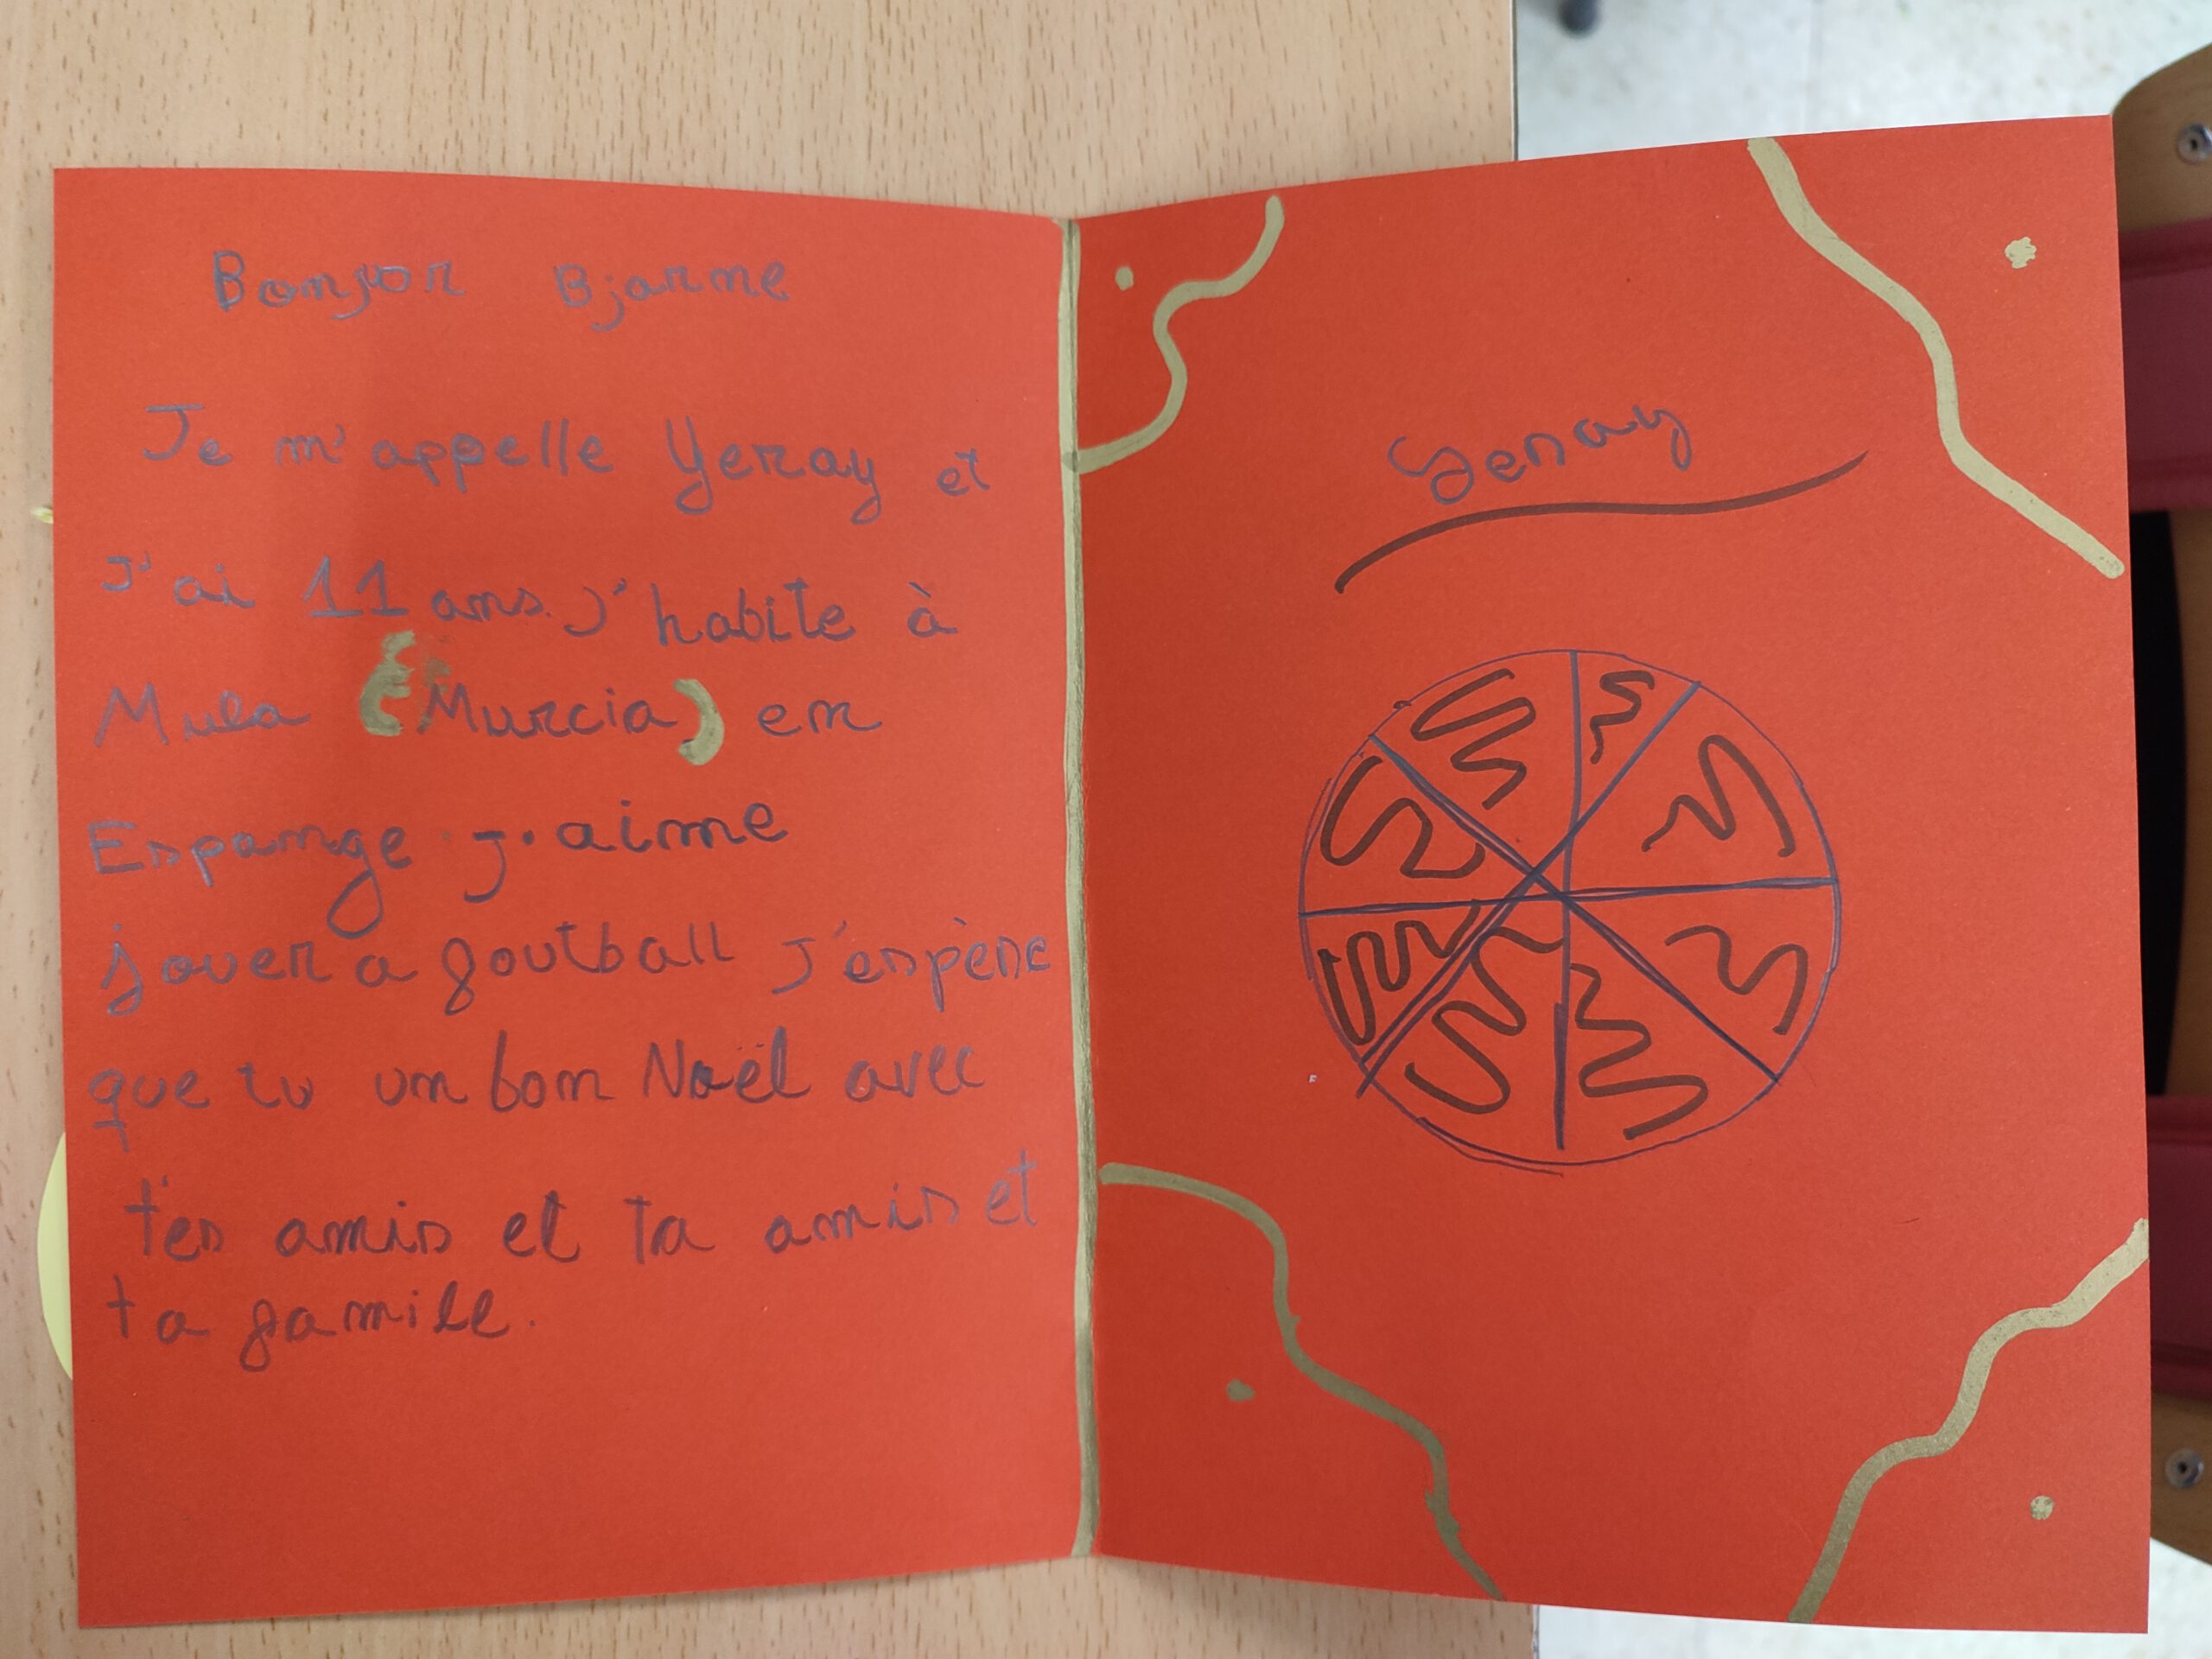 Bonjor Bjarne
Je m'appelle Yeray et
J'ai 11 ans. J'habite à
Mula (Murcia) en
Espange. J'aime
jouer a foutball J'espère
que tu un bon Noël avec
t'es amis et ta amis et
ta famille.
Yeray